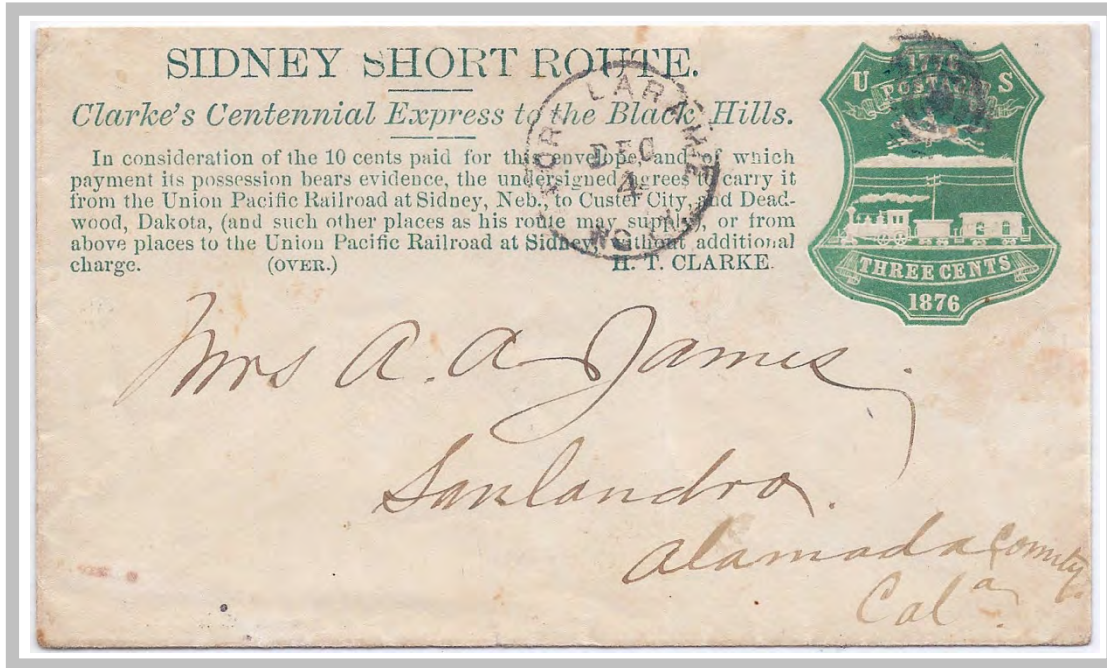 SIDNEY SHORT ROUTE.
Clarke's Centennial Express to the Black Hills.
In consideration of the 10 cents paid for this envelope, and of which
payment its possession bears evidence, the undersigned agrees to carry it
from the Union Pacific Railroad at Sidney, Neb., to Custer City, and Dead-
wood, Dakota, (and such other places as his route may supply), or from
above places to the Union Pacific Railroad at Sidney, without additional
charge. (OVER.) H. T. CLARKE.
LARAMIE
DEC
4
U S
1776
POSTAGE
THREE CENTS
1876
Mrs A. A. James
Sanlandro.
Alamada County
Cala